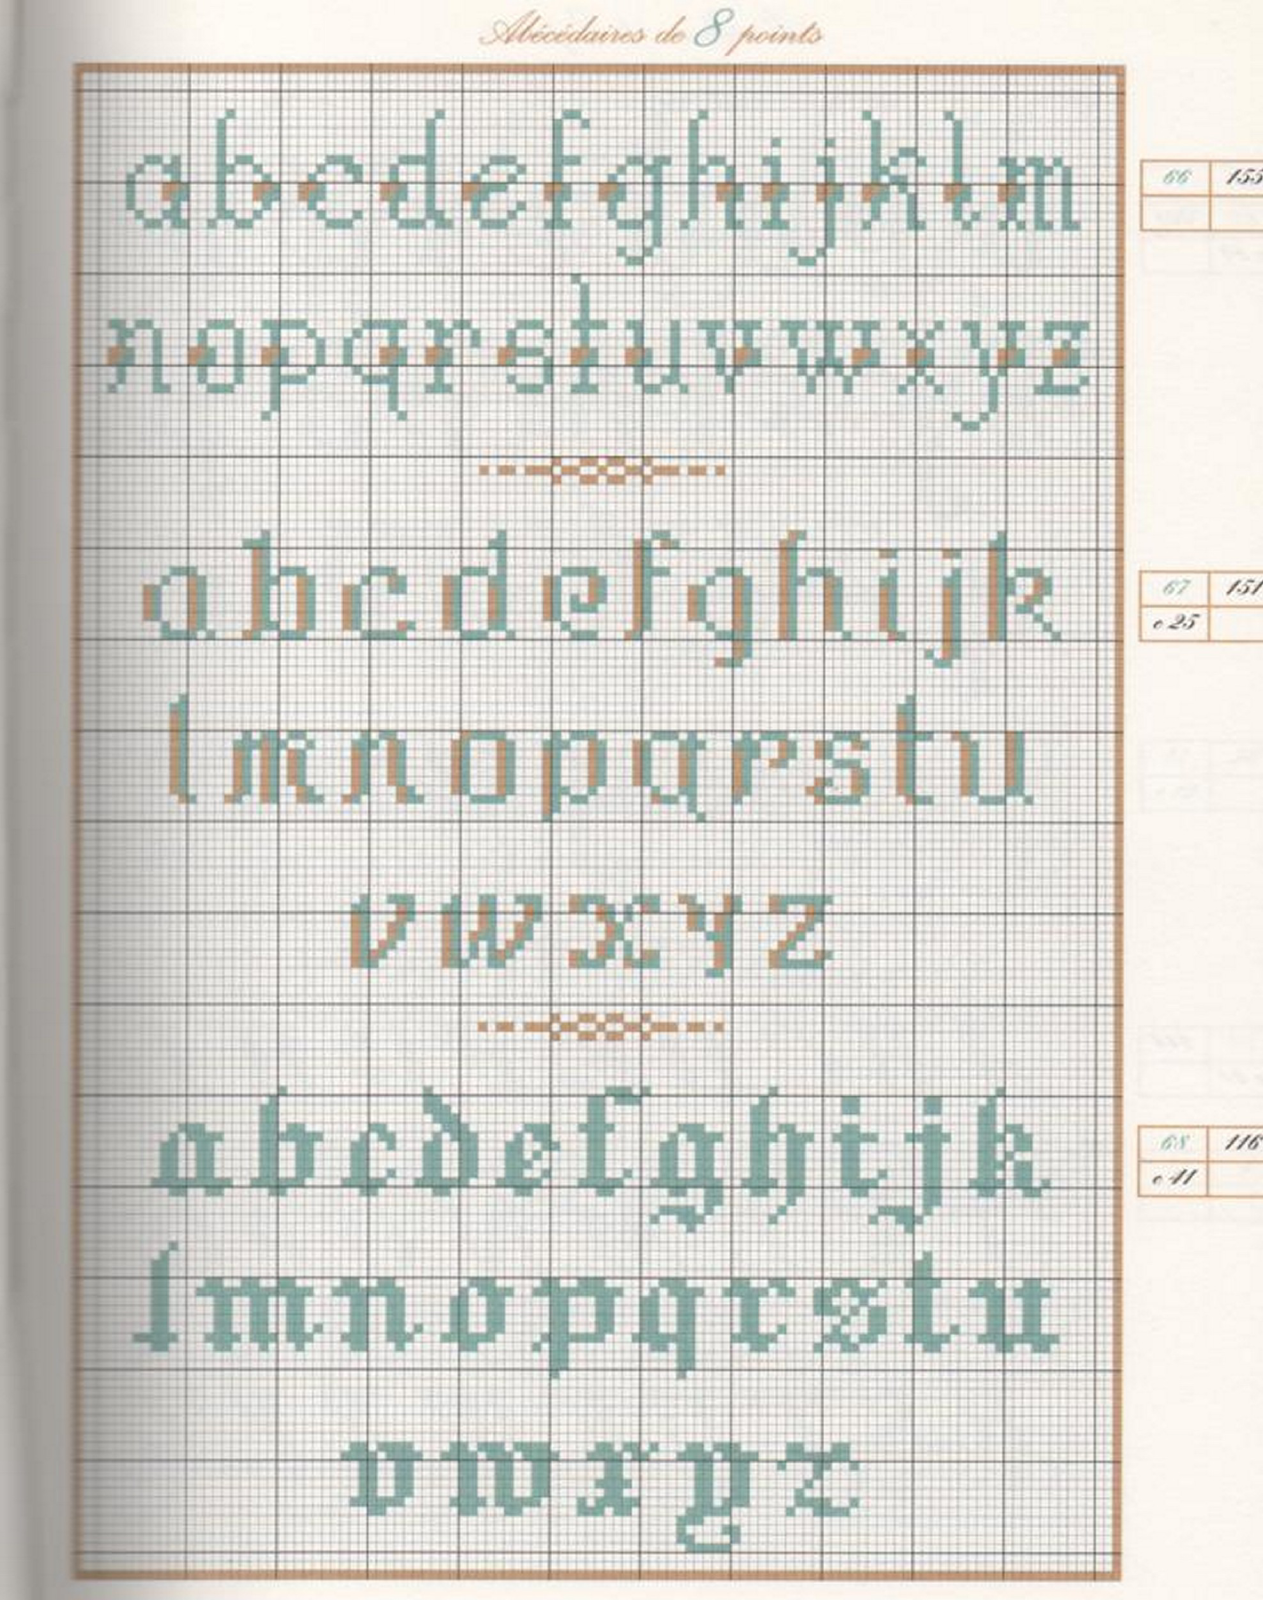 Abécédaires de 8 points
abcdefghijklm
66 155
nopqrstuvwxyz
abcdefghijk
67 151
c 25
lmnopqrstu
vwxyz
abcdefghijk
68 116
c 41
lmnopqrstu
vwxyz